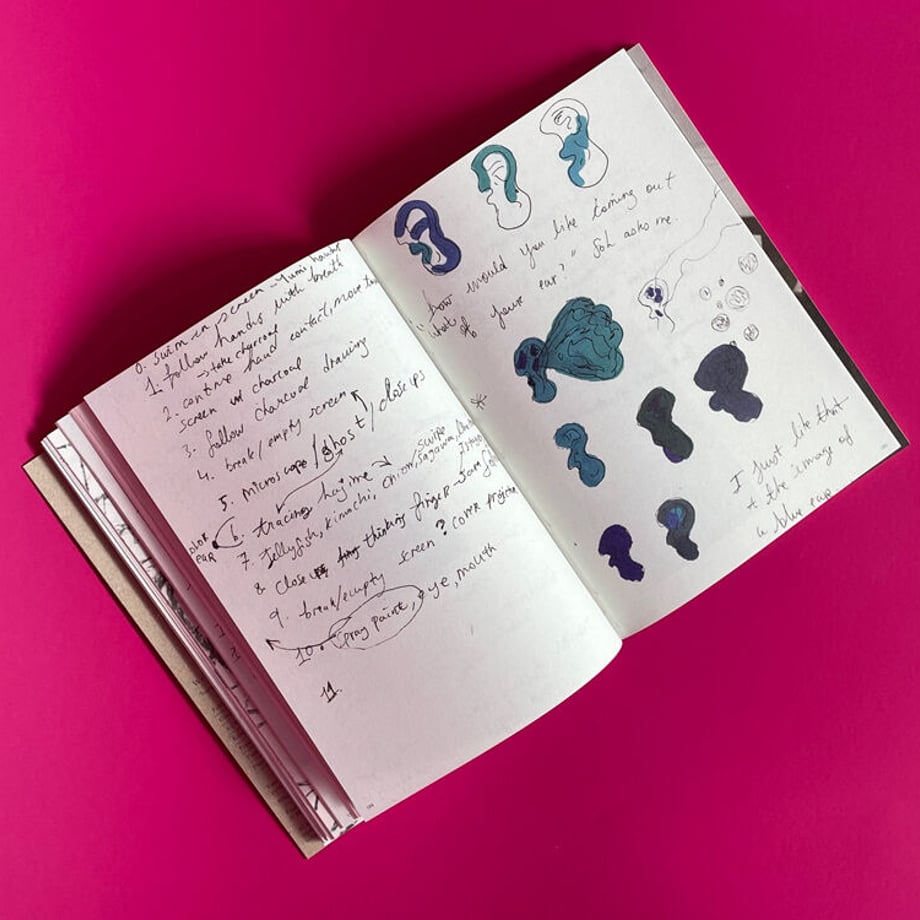 0. swim in screen - Yumi
1. follow hands with breath
→ take charcoal
2. continue hand contact, move
screen w charcoal
3. follow charcoal drawing
4. break/empty screen
5. microscope/ghost/closeups
6. tracing hajime → swipe
7. Jellyfish, kimachi, chion, sagawa,
8 close thinking finger
9. break/empty screen? cover
10. spray paint, eye, mouth
11.
EAR
"how would you like coming out
of your ear?" Soh asks me.
*
I just like that
the image of
a blue ear